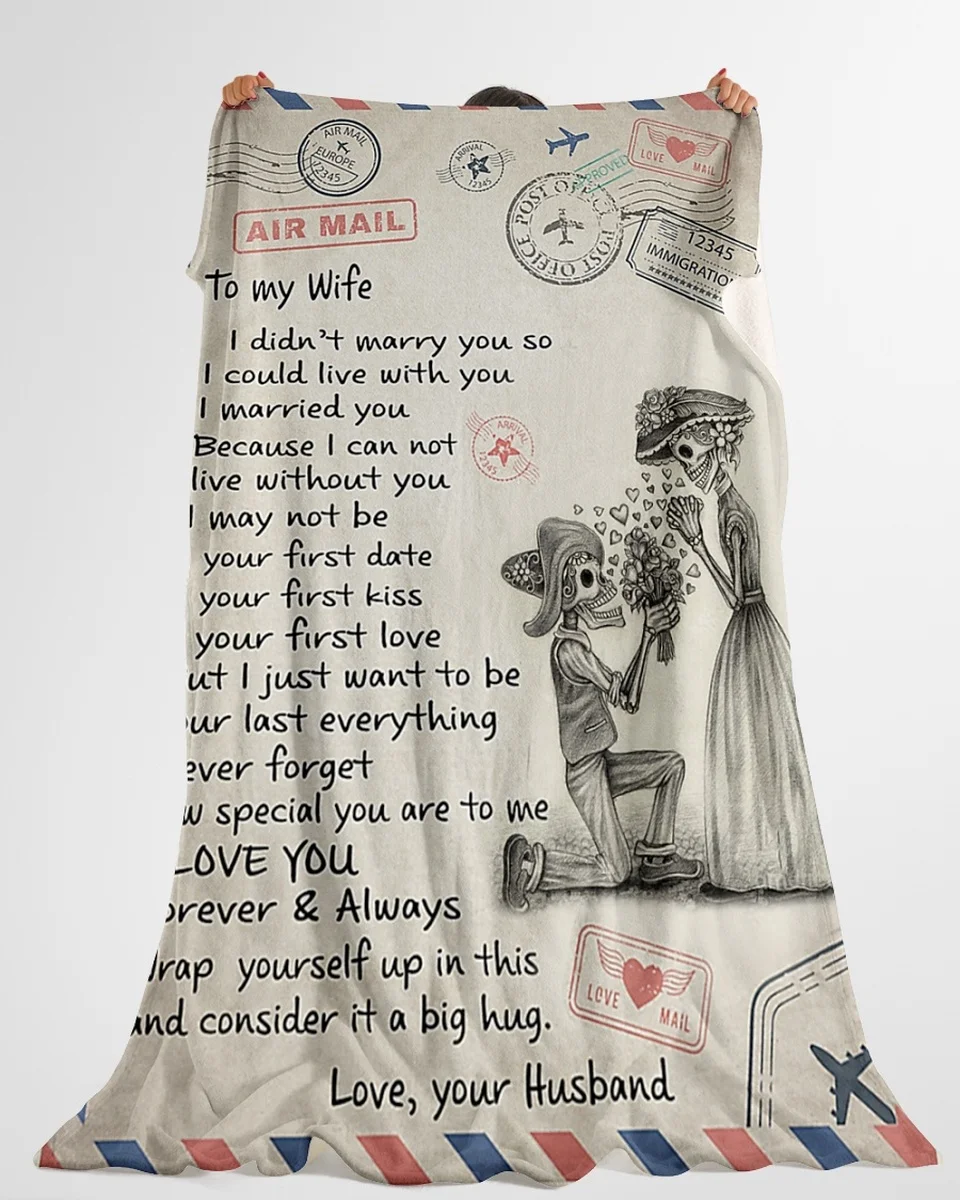 AIR MAIL
EUROPE
12345
ARRIVAL
12345
LOVE MAIL
POST OFFICE POST OFFICE
12345
AIR MAIL
To my Wife
I didn't marry you so
I could live with you
I married you
Because I can not
live without you
ARRIVAL
12345
I may not be
your first date
your first kiss
your first love
ut I just want to be
ur last everything
ever forget
w special you are to me
LOVE YOU
orever & Always
rap yourself up in this
and consider it a big hug.
LOVE MAIL
Love, your Husband